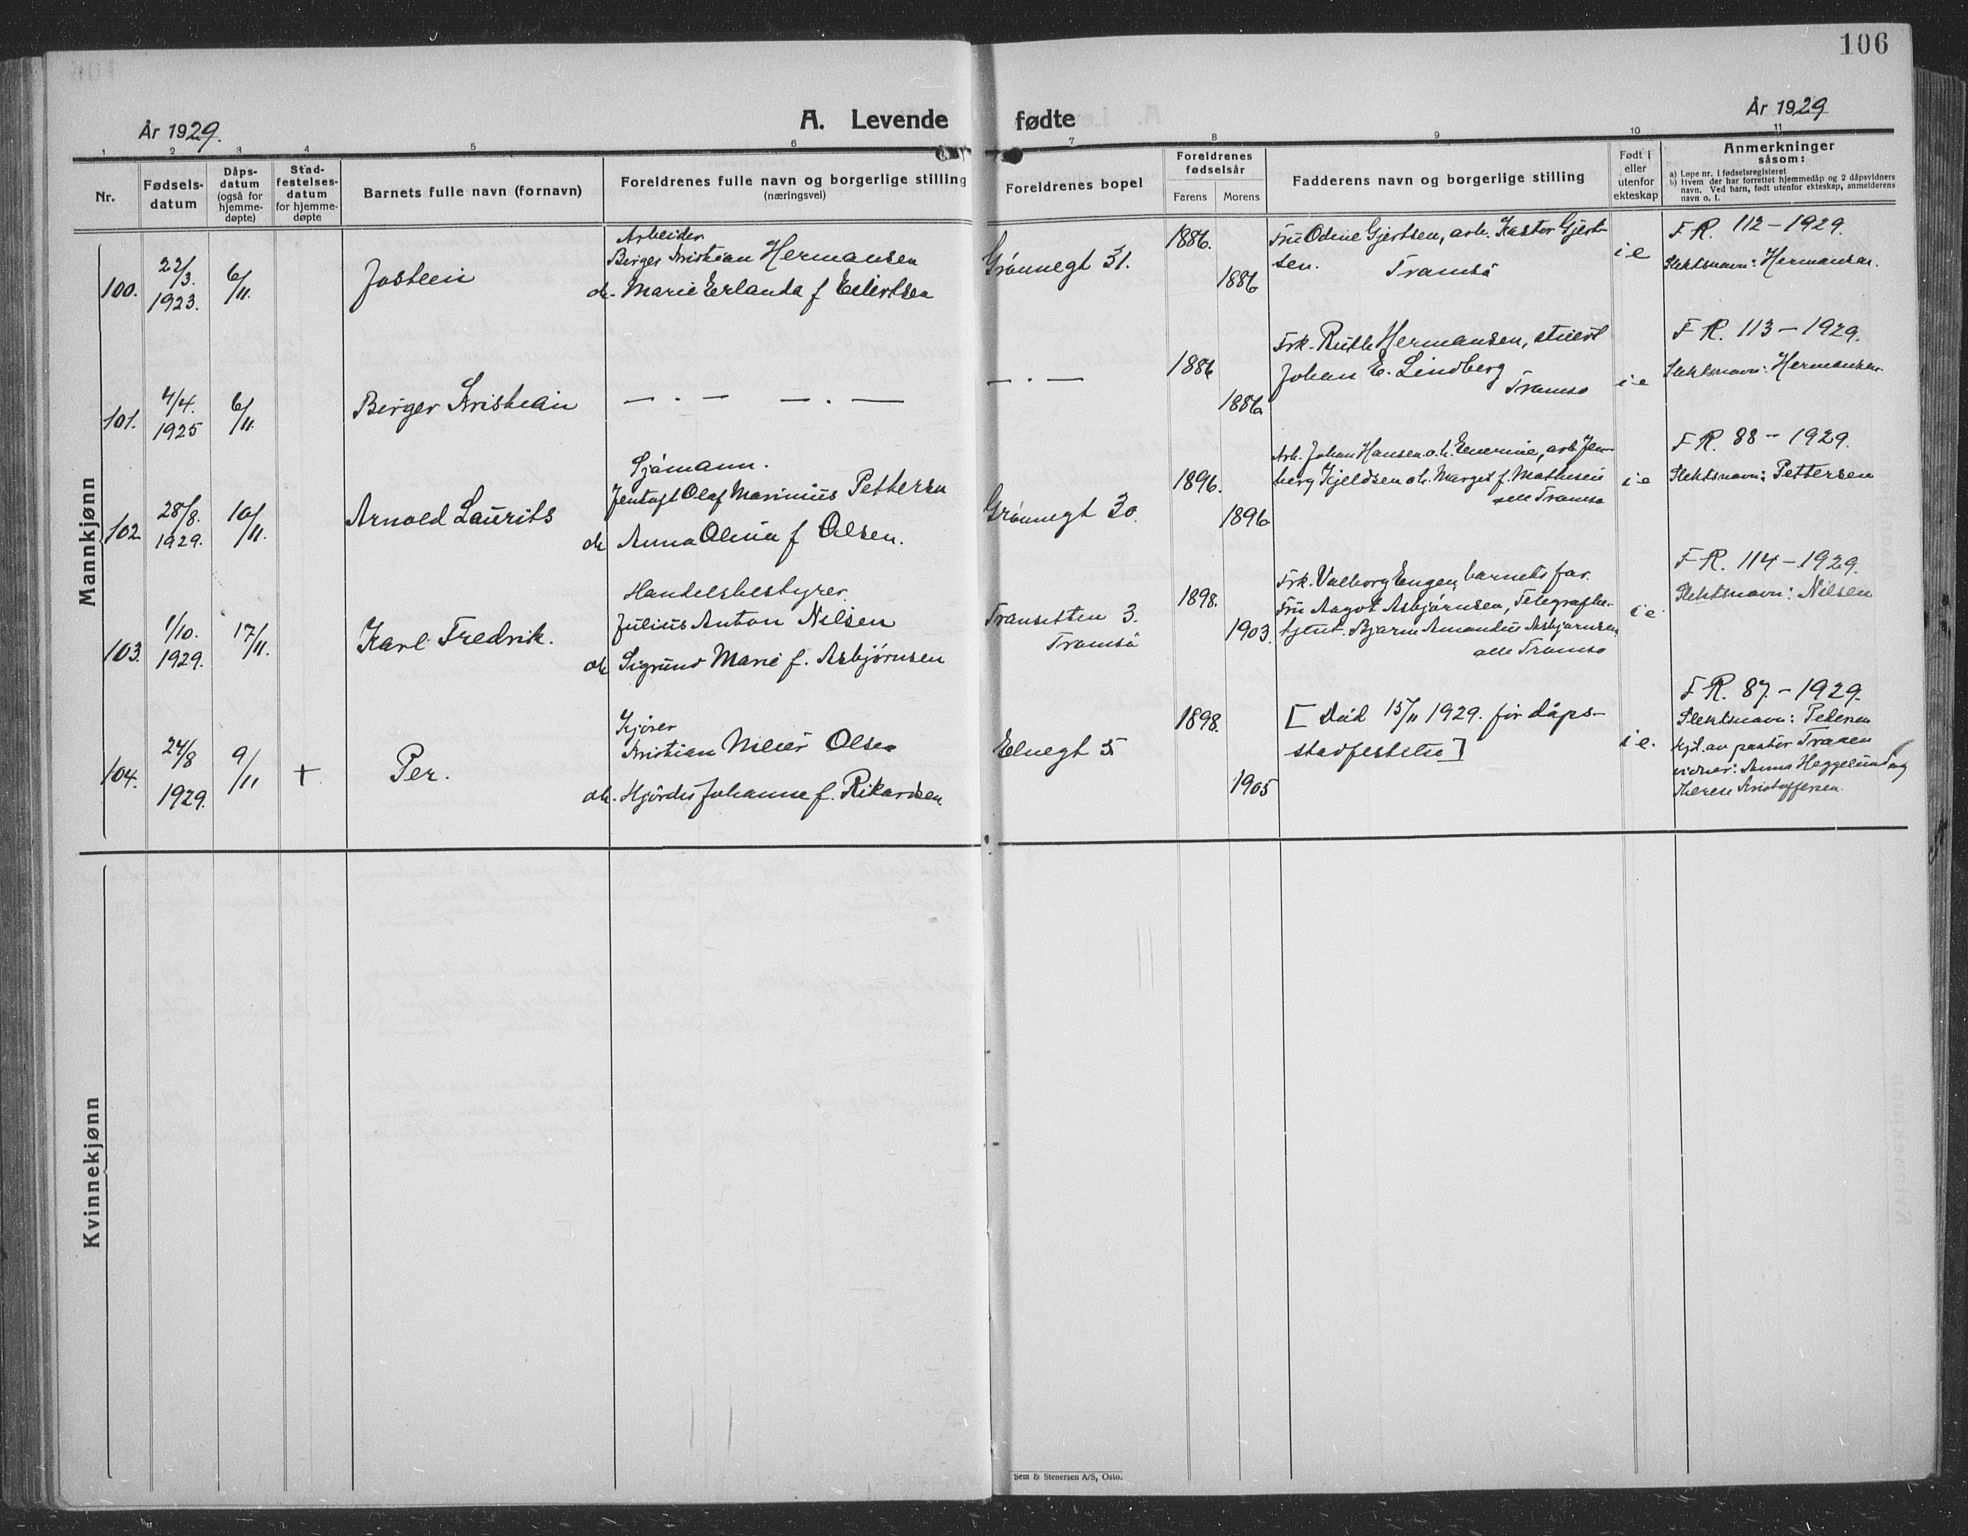 106
År 1929.
A. Levende fødte
År 1929
1 2 3 4 5 6 7 8 9 10 11
Nr.
Fødsels-
datum
Dåps-
datum
(også for
hjemme-
døpte)
Stad-
festelses-
datum
for hjemme-
døpte
Barnets fulle navn (fornavn)
Foreldrenes fulle navn og borgerlige stilling
(næringsvei)
Foreldrenes bopel
Foreldrenes
fødselsår
Farens Morens
Fadderens navn og borgerlige stilling
Født i
eller
utenfor
ekteskap
Anmerkninger
såsom:
a) Løpe nr. i fødselsregisteret
b) Hvem der har forrettet hjemmedåp og 2 dåpsvidners
navn. Ved barn, født utenfor ekteskap, anmelderens
navn o. l.
Mannkjønn
100. 22/3. 1923. 6/11. Jostein
Arbeider
Birger Kristian Hermansen
ok. Marie Erlanda f Eilertsen
Grønnegt 31.
1886.
1886
Fru Odine Gjertsen, arb. Kastor Gjert-
sen. Tromsö
i e
F R. 112 - 1929.
Slektsnavn: Hermansen.
101. 4/4. 1925 6/11. Birger Kristian
— . — — . —
— . —
1886
1886
Frk. Ruth Hermansen, stuert
Johan E. Lindberg
Tromsø
i e
F R. 113 - 1929.
Slektsnavn: Hermansen
102 28/8. 1929. 10/11. Arnold Laurits
Sjömann.
Jentoft Olaf Marinius Pettersen
ok Anna Olina f Olsen.
Grönnegt 30.
1896.
1896
Arb. Johan Hansen o.h. Enerine, arb. Jen-
berg Kjeldsen o.h. Margit f. Mathisen
alle Tromsø
i e
F R. 88 - 1929.
Slektsnavn: Pettersen
103. 1/10. 1929. 17/11. Karl Fredrik.
Handelsbestyrer.
Julius Anton Nilsen
ok Sigrund Marie f. Asbjørnsen
3.
Tromsö
1898.
1903.
Frk. Valborg Engen, barnets far.
Fru Aagot Asbjørnsen, Telegrafbe-
tjent. Bjarne Amandus Asbjørnsen,
alle Tromsø
i e.
F R. 114 - 1929.
Slektsnavn: Nilsen
104. 24/8 1929. 9/11 + Per.
Kjører
Kristian Meier Olsen
ok. Hjørdis Johanne f. Rikardsen
Elvegt 5
1898.
1905
[ Död 15/11 1929. før dåps-
stadfestelse ]
i e.
F R. 87. - 1929.
Slektsnavn: Pedersen
hjd. av pastor Traaen
vidner: Anna Heggelund og
Therese Kristoffersen.
Kvinnekjønn
Sem & Stenersen A/S, Oslo.